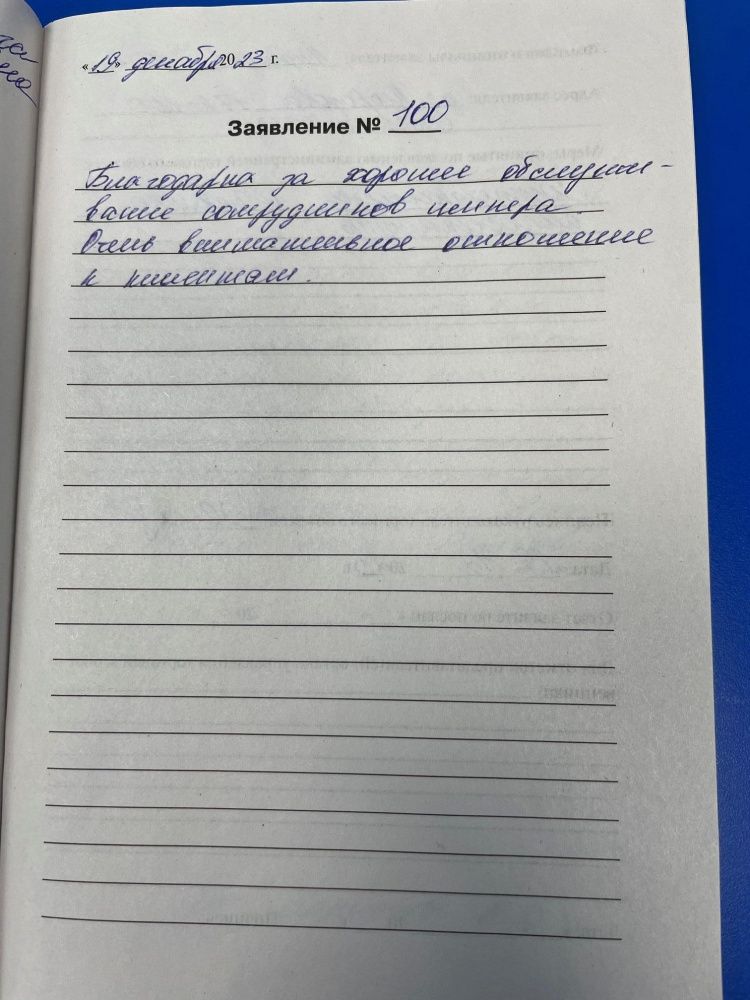 «19» декабря 2023 г.
Заявление № 100
Благодарна за хорошее обслужи-
вание сотрудников центра
Очень внимательное отношение
к клиентам.